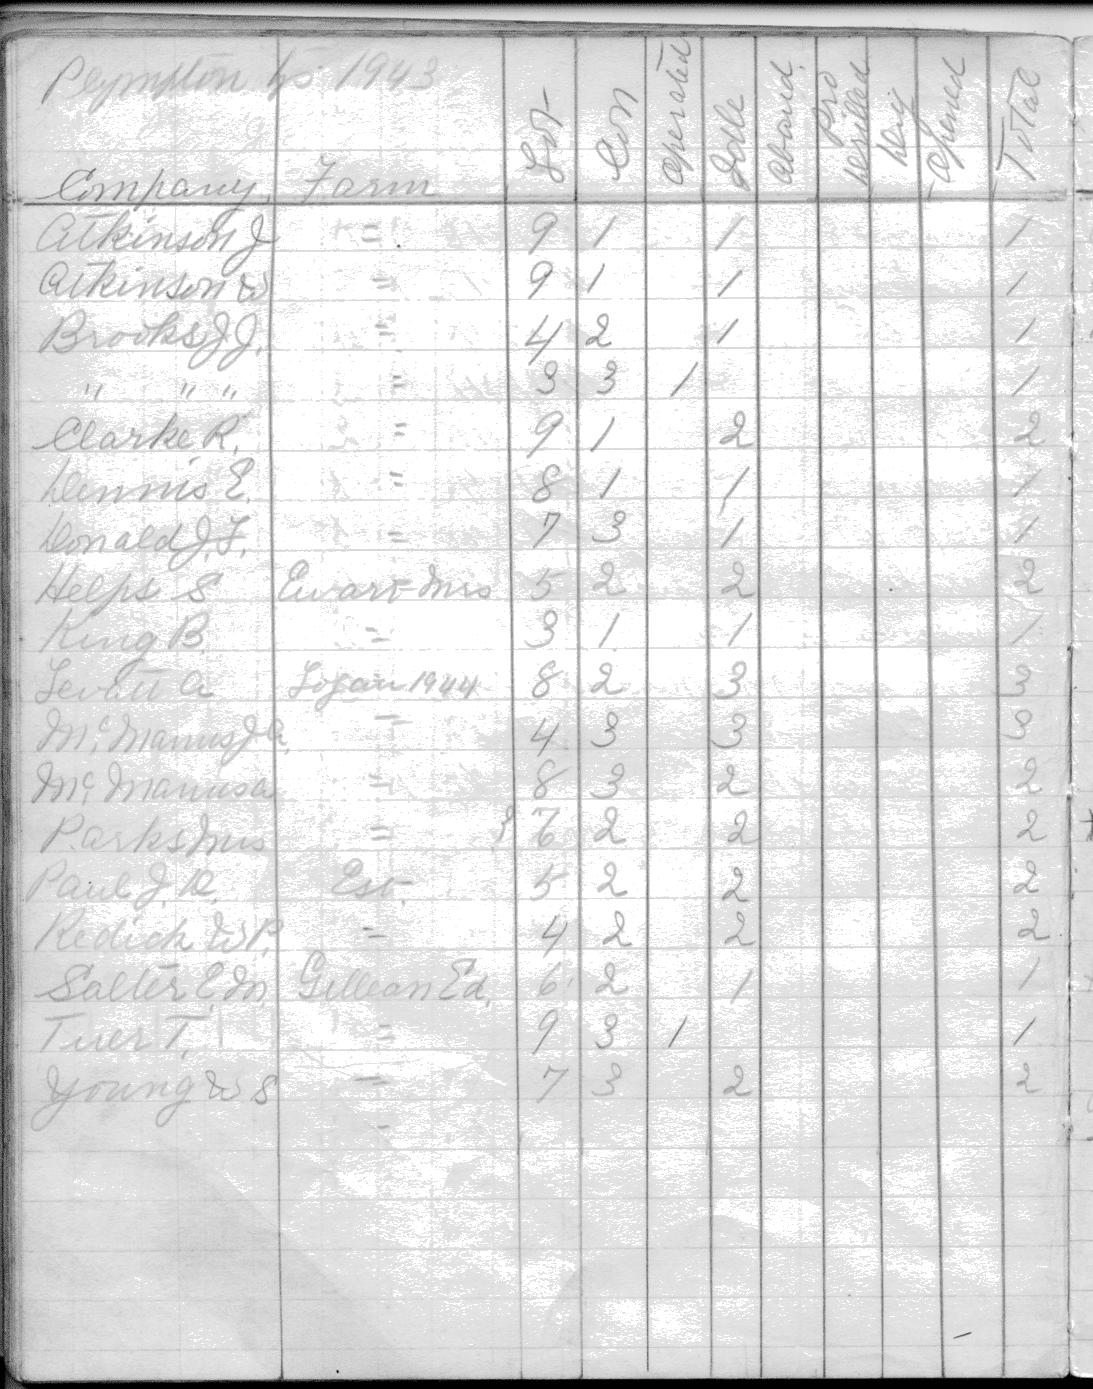 Plympton Tp 1943
Company Farm Lot Con Operated Idle Aband. Pro Drilled Dry Opened Total
Atkinson J = 9 1 1 1
Atkinson W = 9 1 1 1
Brooks J J. = 4 2 1 1
" " " = 3 3 1 1
Clarke R. = 9 1 2 2
Dennis E. = 8 1 1 1
Donald J. F. = 7 3 1 1
Helps S Ewart Mrs 5 2 2 2
King B. = 3 1 1 1
Levitt A Logan 1944 8 2 3 3
Mc Manus J A = 4 3 3 3
Mc Manus A = 8 3 2 2
Parks Mrs = 6 2 2 2
Paul J. R. Est. 5 2 2 2
Redick W P. = 4 2 2 2
Salter E. Gillean Ed. 6 2 1 1
Tuer T. = 9 3 1 1
Young W S = 7 3 2 2
=